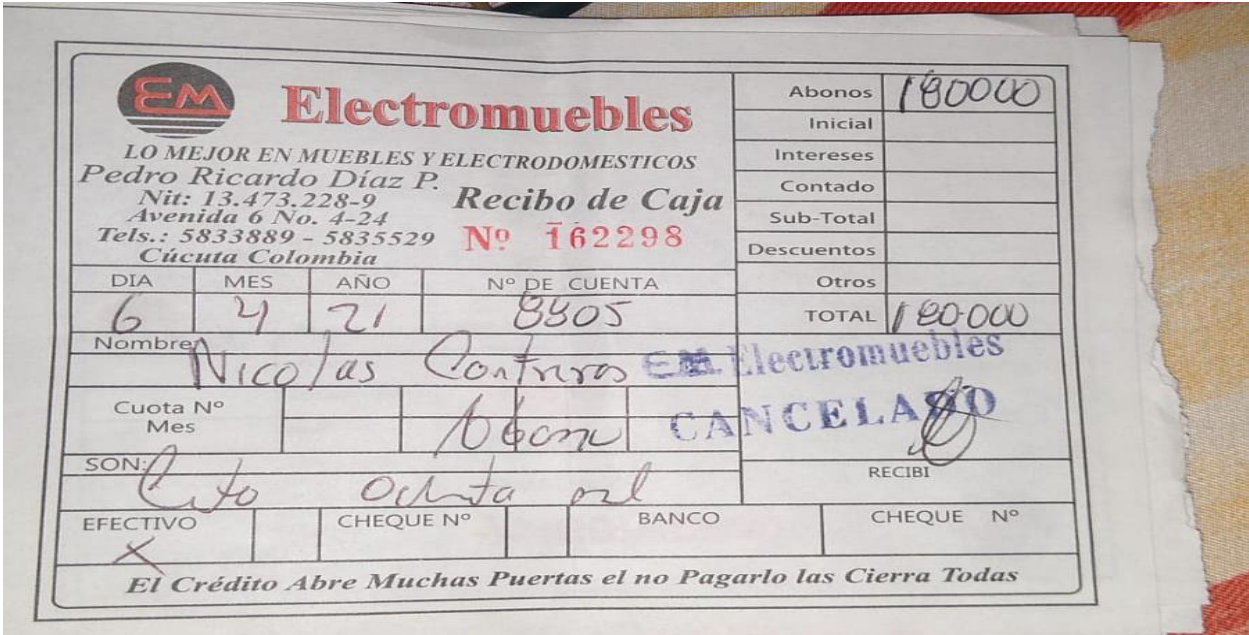 EM
Electromuebles
LO MEJOR EN MUEBLES Y ELECTRODOMESTICOS
Pedro Ricardo Díaz P.
Nit: 13.473.228-9
Avenida 6 No. 4-24
Tels.: 5833889 - 5835529
Cúcuta Colombia
Recibo de Caja
Nº 162298
Abonos 180000
Inicial
Intereses
Contado
Sub-Total
Descuentos
Otros
TOTAL 180.000
DIA MES AÑO Nº DE CUENTA
6 4 21
Nombre Nicolas
EM Electromuebles
CANCELADO
Cuota Nº
Mes
RECIBI
SON:
EFECTIVO CHEQUE Nº BANCO CHEQUE Nº
X
El Crédito Abre Muchas Puertas el no Pagarlo las Cierra Todas